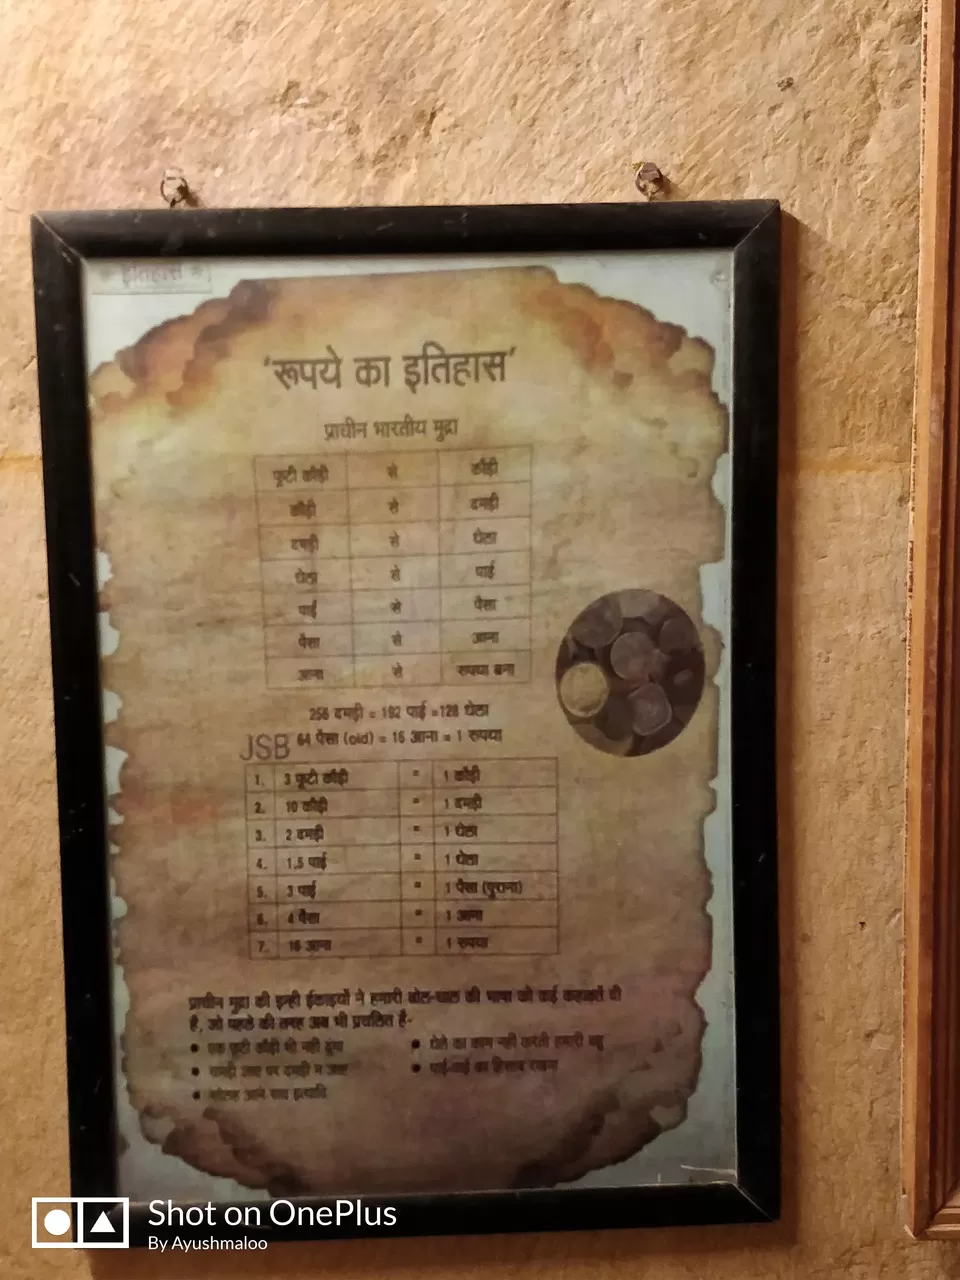 इतिहास
'रूपये का इतिहास'
प्राचीन भारतीय मुद्रा
फूटी कौड़ी से कौड़ी
कौड़ी से दमड़ी
दमड़ी से धेला
धेला से पाई
पाई से पैसा
पैसा से आना
आना से रुपया बना
256 दमड़ी = 192 पाई =128 धेला
JSB 64 पैसा (old) = 16 आना = 1 रुपया
1. 3 फूटी कौड़ी = 1 कौड़ी
2. 10 कौड़ी = 1 दमड़ी
3. 2 दमड़ी = 1 धेला
4. 1.5 पाई = 1 धेला
5. 3 पाई = 1 पैसा (पुराना)
6. 4 पैसा = 1 आना
7. 16 आना = 1 रुपया
प्राचीन मुद्रा की इन्ही ईकाइयों ने हमारी बोल-चाल की भाषा को कई कहावतें दी
हैं, जो पहले की तरह अब भी प्रचलित हैं-
• एक फूटी कौड़ी भी नही दूंगा
• धेले का काम नही करती हमारी बहू
• चमड़ी जाए पर दमड़ी न जाए
• पाई-पाई का हिसाब रखना
• सोलह आने सच इत्यादि
Shot on OnePlus
By Ayushmaloo